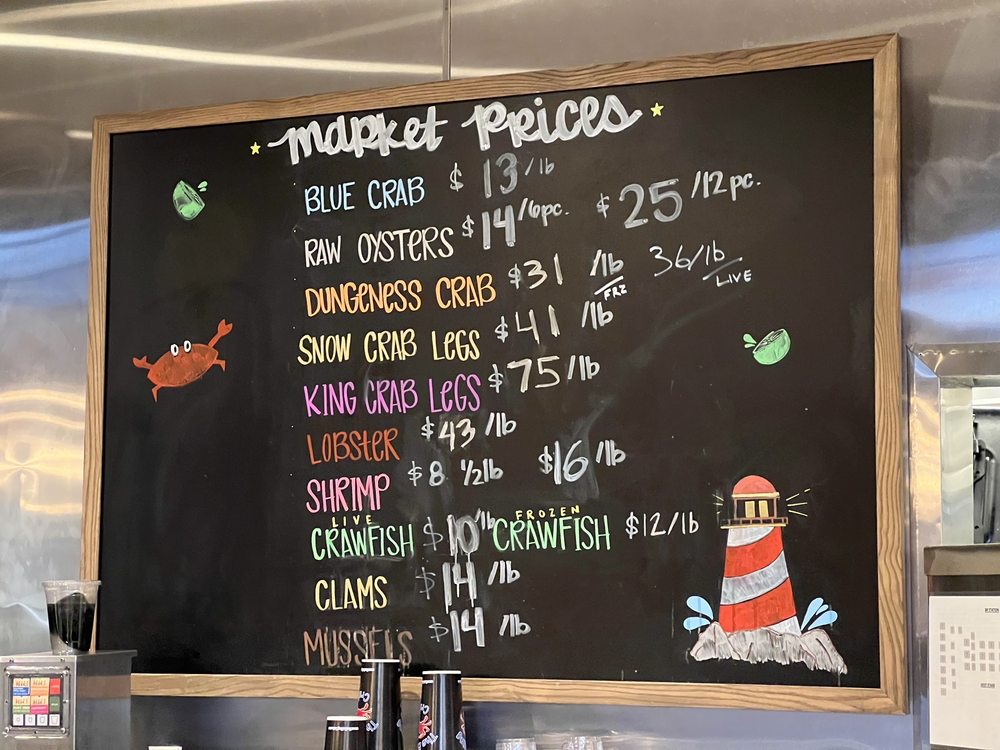 Market Prices
BLUE CRAB $13/lb
RAW OYSTERS $14/6pc. $25/12pc.
DUNGENESS CRAB $31 /lb FRZ 36/lb LIVE
SNOW CRAB LEGS $41 /lb
KING CRAB LEGS $75/lb
LOBSTER $43/lb
SHRIMP $8 1/2lb $16/lb
LIVE CRAWFISH $10/lb FROZEN CRAWFISH $12/lb
CLAMS $14/lb
MUSSELS $14/lb